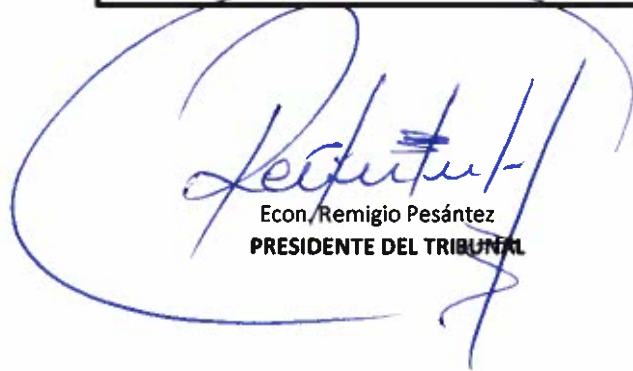 Econ. Remigio Pesántez
PRESIDENTE DEL TRIBUNAL